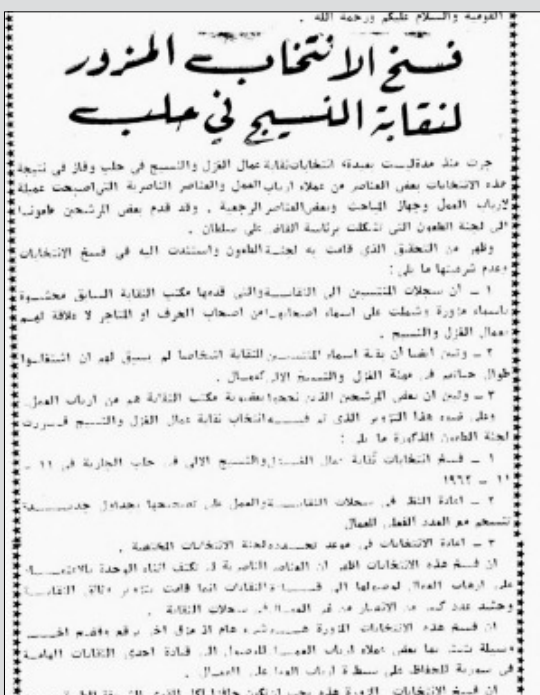 القومية والسلام عليكم ورحمة الله .
فسخ الانتخاب المزور
لنقابة النسيج في حلب
جرت منذ مدة ليست بعيدة انتخابات نقابة عمال الغزل والنسيج في حلب وفاز في نتيجة
هذه الانتخابات بعض العناصر من عملاء ارباب العمل والعناصر الناصرية التي اصبحت عميلة
لارباب العمل وجهاز المباحث وبعض العناصر الرجعية . وقد قدم بعض المرشحين طعونا
الى لجنة الطعون التي تشكلت برئاسة القاضي علي سلطان .
وظهر من التحقيق الذي قامت به لجنة الطعون واستندت اليه في فسخ الانتخابات
وعدم شرعيتها ما يلي :
١ ــ ان سجلات المنتسبين الى النقابة والتي قدمها مكتب النقابة السابق محشوة
باسماء مزورة وشملت على اسماء اصحابها من اصحاب الحرف او المتاجر لا علاقة لهم
بعمال الغزل والنسيج .
٢ ــ وتبين ايضا ان بقية اسماء المنتسبين للنقابة اشخاصا لم يسبق لهم ان اشتغلوا
طوال حياتهم في مهنة الغزل والنسيج الالي كعمال .
٣ ــ وتبين ان بعض المرشحين الذين نجحوا بعضوية مكتب النقابة هم من ارباب العمل .
وعلى ضوء هذا التزوير الذي تم في انتخاب نقابة عمال الغزل والنسيج قررت
لجنة الطعون المذكورة ما يلي :
١ ــ فسخ انتخابات نقابة عمال الغزل والنسيج الالي في حلب الجارية في ١١ ــ
١١ ــ ١٩٦٢
٢ ــ اعادة النظر في سجلات النقابة والعمل على تصحيحها بجداول جديدة
تنسجم مع العدد الفعلي للعمال
٣ ــ اعادة الانتخابات في موعد تحدده لجنة الانتخابات المختصة .
ان فسخ هذه الانتخابات اظهر ان العناصر الناصرية لم تكتف اثناء الوحدة بالاعتماد
على ارهاب العمال لوصولها الى قيادة النقابات انما قامت بتزوير وثائق النقابة
وحشد عدد كبير من الانصار من غير العمال في سجلات النقابة .
ان فسخ هذه الانتخابات المزورة هو
وسيلة بها بعض عملاء ارباب العمل للوصول الى قيادة احدى النقابات الهامة
في سورية للحفاظ على سيطرة ارباب العمل على العمال .
ان فسخ الانتخابات المزورة هذه يجب ان يكون حافزا لكل